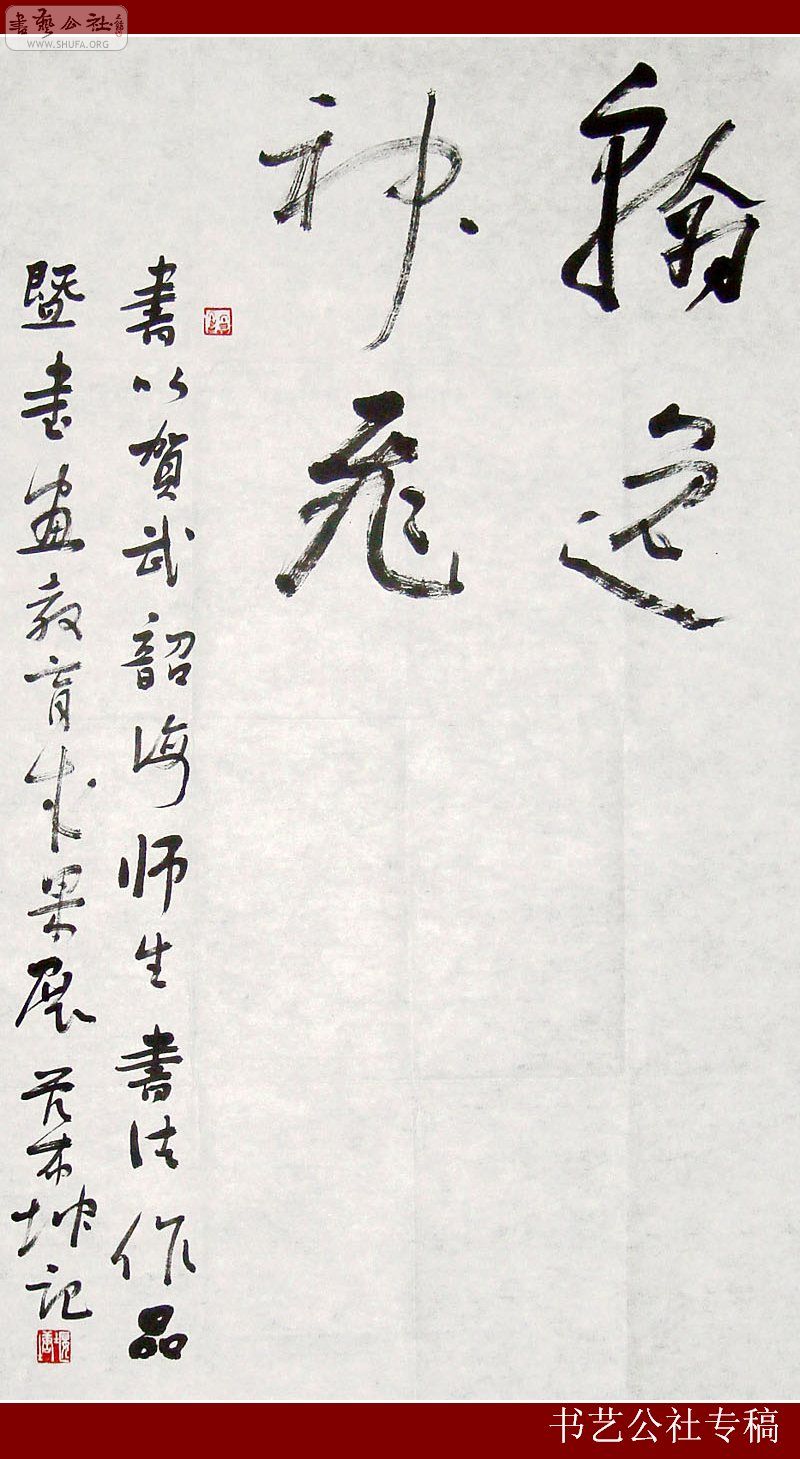 書艺公社
WWW.SHUFA.ORG
翰逸
神飛
書以賀武韶海师生書法作品
暨書画教育成果展 坤记
书艺公社专稿